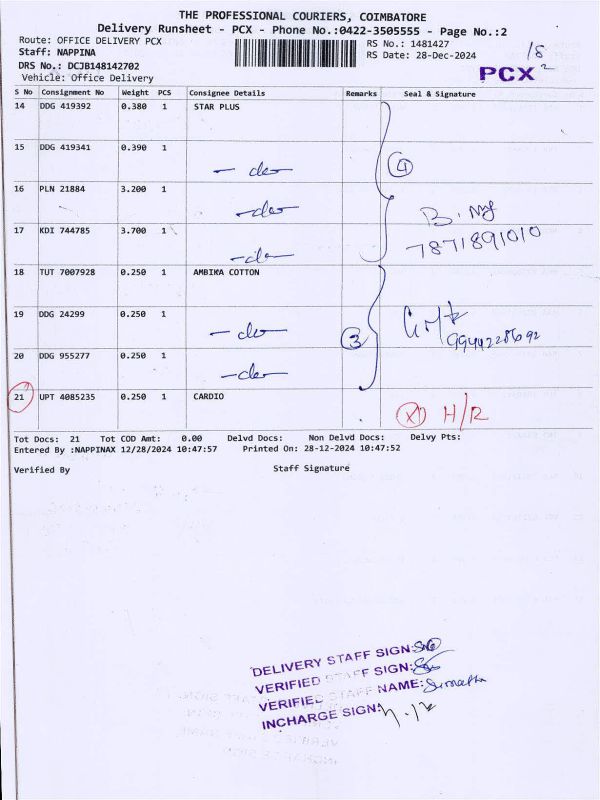 THE PROFESSIONAL COURIERS, COIMBATORE
Delivery Runsheet - PCX - Phone No.:0422-3505555 - Page No.:2
Route: OFFICE DELIVERY PCX RS No.: 1481427
Staff: NAPPINA RS Date: 28-Dec-2024
DRS No.: DCJB148142702 PCX
Vehicle: Office Delivery
S No Consignment No Weight PCS Consignee Details Remarks Seal & Signature
14 DDG 419392 0.380 1 STAR PLUS
15 DDG 419341 0.390 1
- do -
4
16 PLN 21884 3.200 1
- do -
17 KDI 744785 3.700 1
7871891010
- do -
18 TUT 7007928 0.250 1 AMBIKA COTTON
19 DDG 24299 0.250 1
- do -
3
20 DDG 955277 0.250 1
- do -
21 UPT 4085235 0.250 1 CARDIO
X H/R
Tot Docs: 21 Tot COD Amt: 0.00 Delvd Docs: Non Delvd Docs: Delvy Pts:
Entered By :NAPPINAX 12/28/2024 10:47:57 Printed On: 28-12-2024 10:47:52
Verified By Staff Signature
DELIVERY STAFF SIGN:
VERIFIED STAFF SIGN:
VERIFIED STAFF NAME:
INCHARGE SIGN: